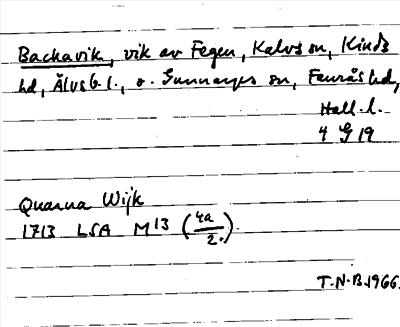 Backavik, vik av Fegen, Kalvs sn, Kinds
hd, Älvsb. l., o. Gunnarps sn, Faurås hd,
Hall. l.
4 G 19
Quarna Wijk
1713 LSA M 13 (4a/2.).
T.N.B. 1966.